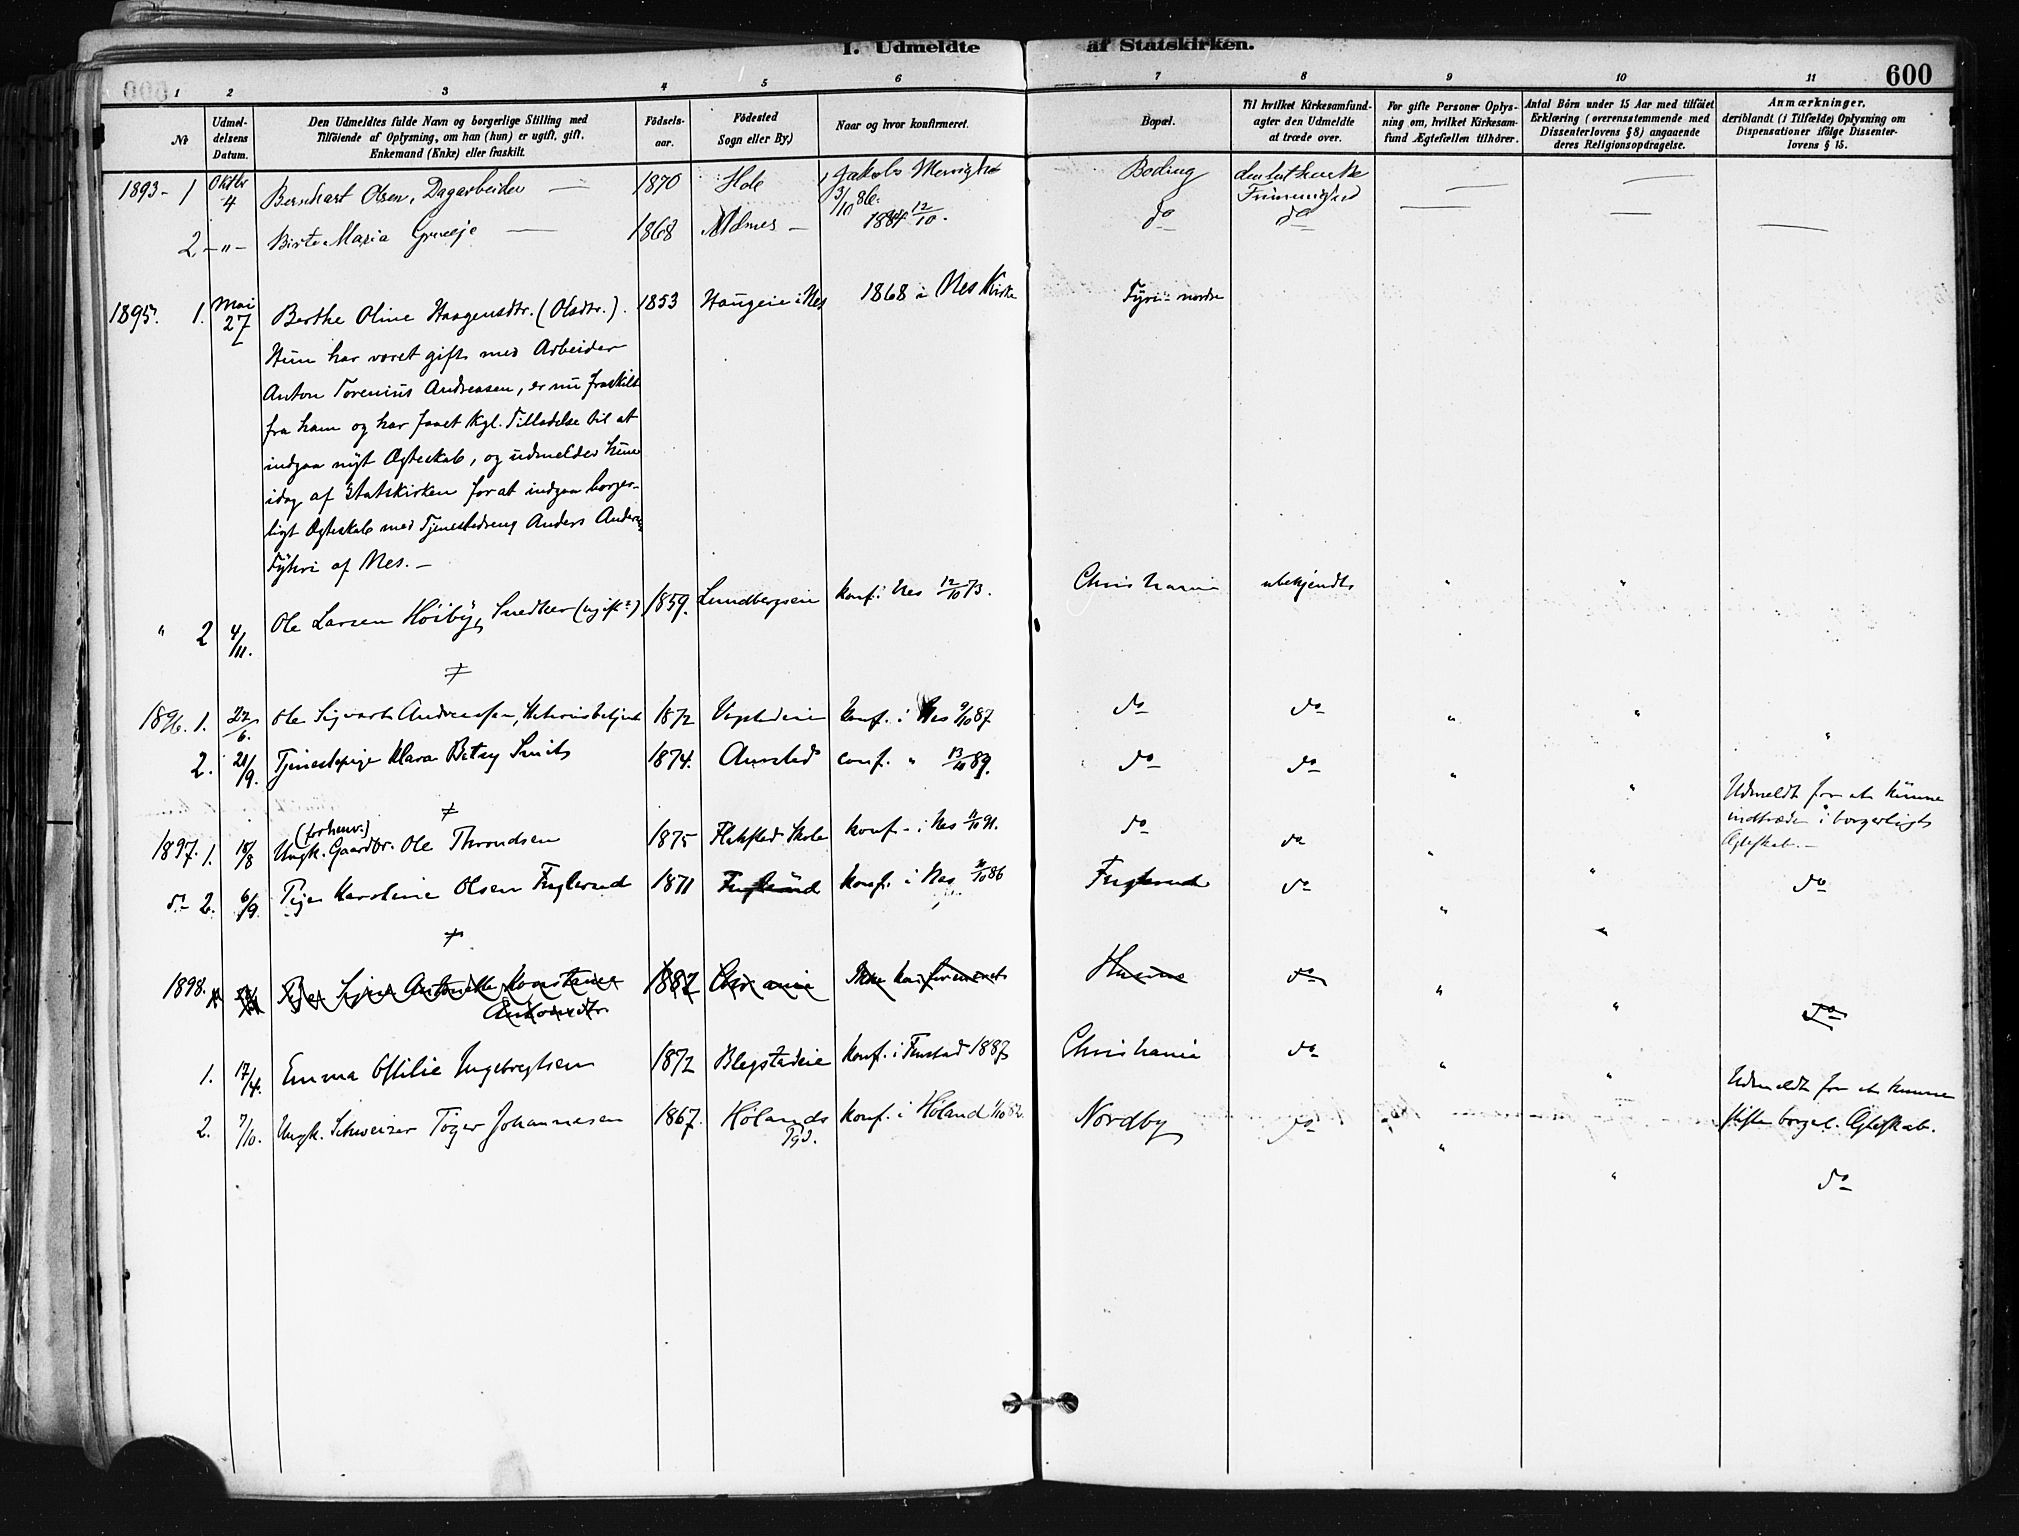 I. Udmeldte af Statskirken.
600
1 2 3 4 5 6 7 8 9 10 11
№
Udmel-
delsens
Datum.
Den Udmeldtes fulde Navn og borgerlige Stilling med
Tilföiende af Oplysning, om han (hun) er ugift, gift,
Enkemand (Enke) eller fraskilt.
Födsels-
aar.
Födested
Sogn eller By.)
Naar og hvor konfirmeret.
Bopæl.
Til hvilket Kirkesamfund-
agter den Udmeldte
at træde over.
For gifte Personer Oplys-
ning om, hvilket Kirkesam-
fund Ægtefællen tilhörer.
Antal Börn under 15 Aar med tilföiet
Erklæring (overensstemmende med
Dissenterlovens § 8) angaaende
deres Religionsopdragelse.
Anmærkninger,
deriblandt (i Tilfælde) Oplysning om
Dispensationer ifölge Dissenter-
lovens § 15.
1893 - 1 Oktbr 4 Bernhart Olsen, Dagarbeider — 1870 Hole Jakobs Menighed 3/10 86. Boding den luth. Frimenighed — —
2 - " - Birte Maria — 1868 Udnes - 1884 12/10. do do — — —
1895. 1. Mai 27 Berthe Oline Haagensdtr. (Olsdtr.). 1853 Haugeie i Nes 1868 i Nes Kirke Fyri nordre
Hun har været gift med Arbeider
Anton Torenius Andreasen, er nu fraskilt
fra ham og har faaet Kgl. Tilladelse til at
indgaa nyt Ægteskab, og udmelder hun
idag af Statskirken for at indgaa borger-
ligt Ægteskab med Tjenestedreng Anders Anders.
Fyhri af Nes. -
" 2 4/11. Ole Larsen Höiby, Snedker (ugift) 1859. Lundbergseie konf. i Nes 12/10 73. Christiania ubekjendt " "
1896. 1. 22/6. Ole Sigvart Andreassen, 1872 konf. i Nes 9/10 87. do do " " "
2. 21/9. Tjenestepige Klara Betsy Smits 1874. Aurstad conf. " 13/10 89. do do " "
1897. 1. 18/8 (forhenv.) Ungk. Gaardbr. Ole Throndsen 1875 Fladstad Skole konf. i Nes 11/10 91. do do " " Udmeldt for at kunne
indtræde i borgerligt
Ægteskab. -
do 2. 6/9. Pige Karoline Olsen Fuglerud 1871 Fuglerud konf. i Nes 86 Fuglerud do " " do
1898. Pige Antonette Konstance
Antonsdtr. 1882 Christiania Ikke konfirmeret Huseie do " " do
1. 17/4. Emma Otilie Ingebregtsen 1872 Blegstadeie konf. i Funstad 1887 Christiania do " " Udmeldt for at kunne
stifte borgel. Ægteskab.
2. 7/10. Ungk. Schweizer Töger Johannesen 1867. Hölands Pgd. konf. i Höland 1/10 82. Nordby do " " do